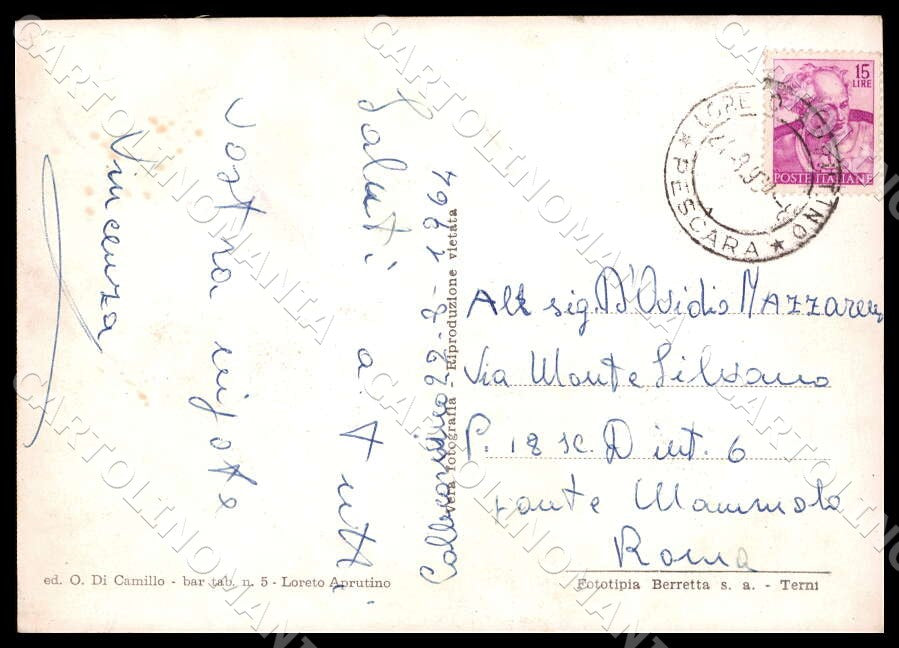 Saluti a tutti
vostra nipote
Vincenza
22-3-1964
Vera fotografia - Riproduzione vietata
15
LIRE
POSTE ITALIANE
LORETO APRUTINO
★ PESCARA ★
sig. D'Ovidio
Via Monte Silvano
P. 18 sc. D int. 6
Ponte Mammolo
Roma
ed. O. Di Camillo - bar tab. n. 5 - Loreto Aprutino
Fototipia Berretta s. a. - Terni
CARTOLINOMANIA